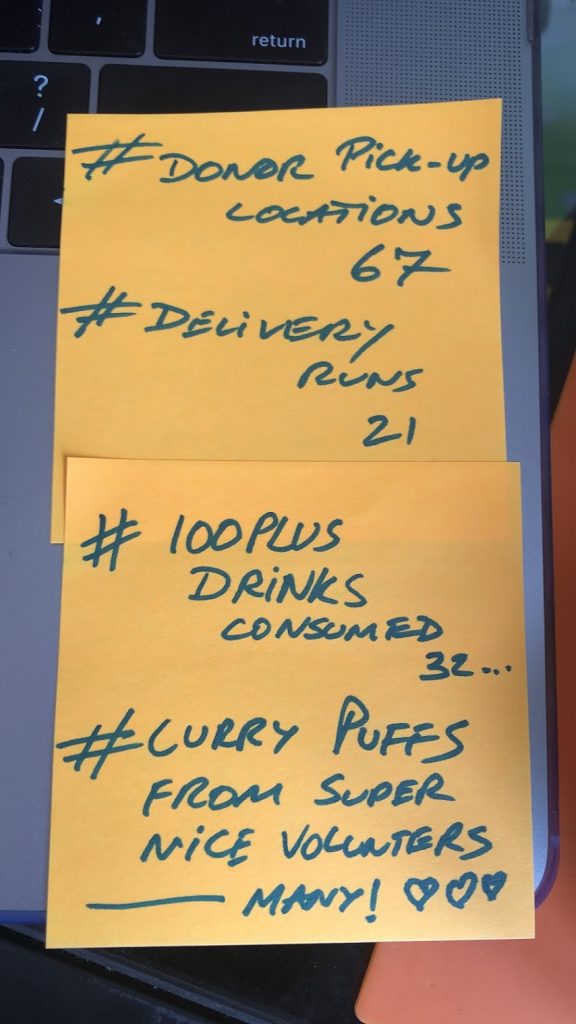 return
?
/
<
# DONOR Pick-up
LOCATIONS
67
# DELiVERY
RUNS
21
# 100PLUS
DRiNKS
CONSUMED
32...
# CURRY PUFFS
FROM SUPER
NiCE VOLUNTERS
—— MANY! ♡♡♡